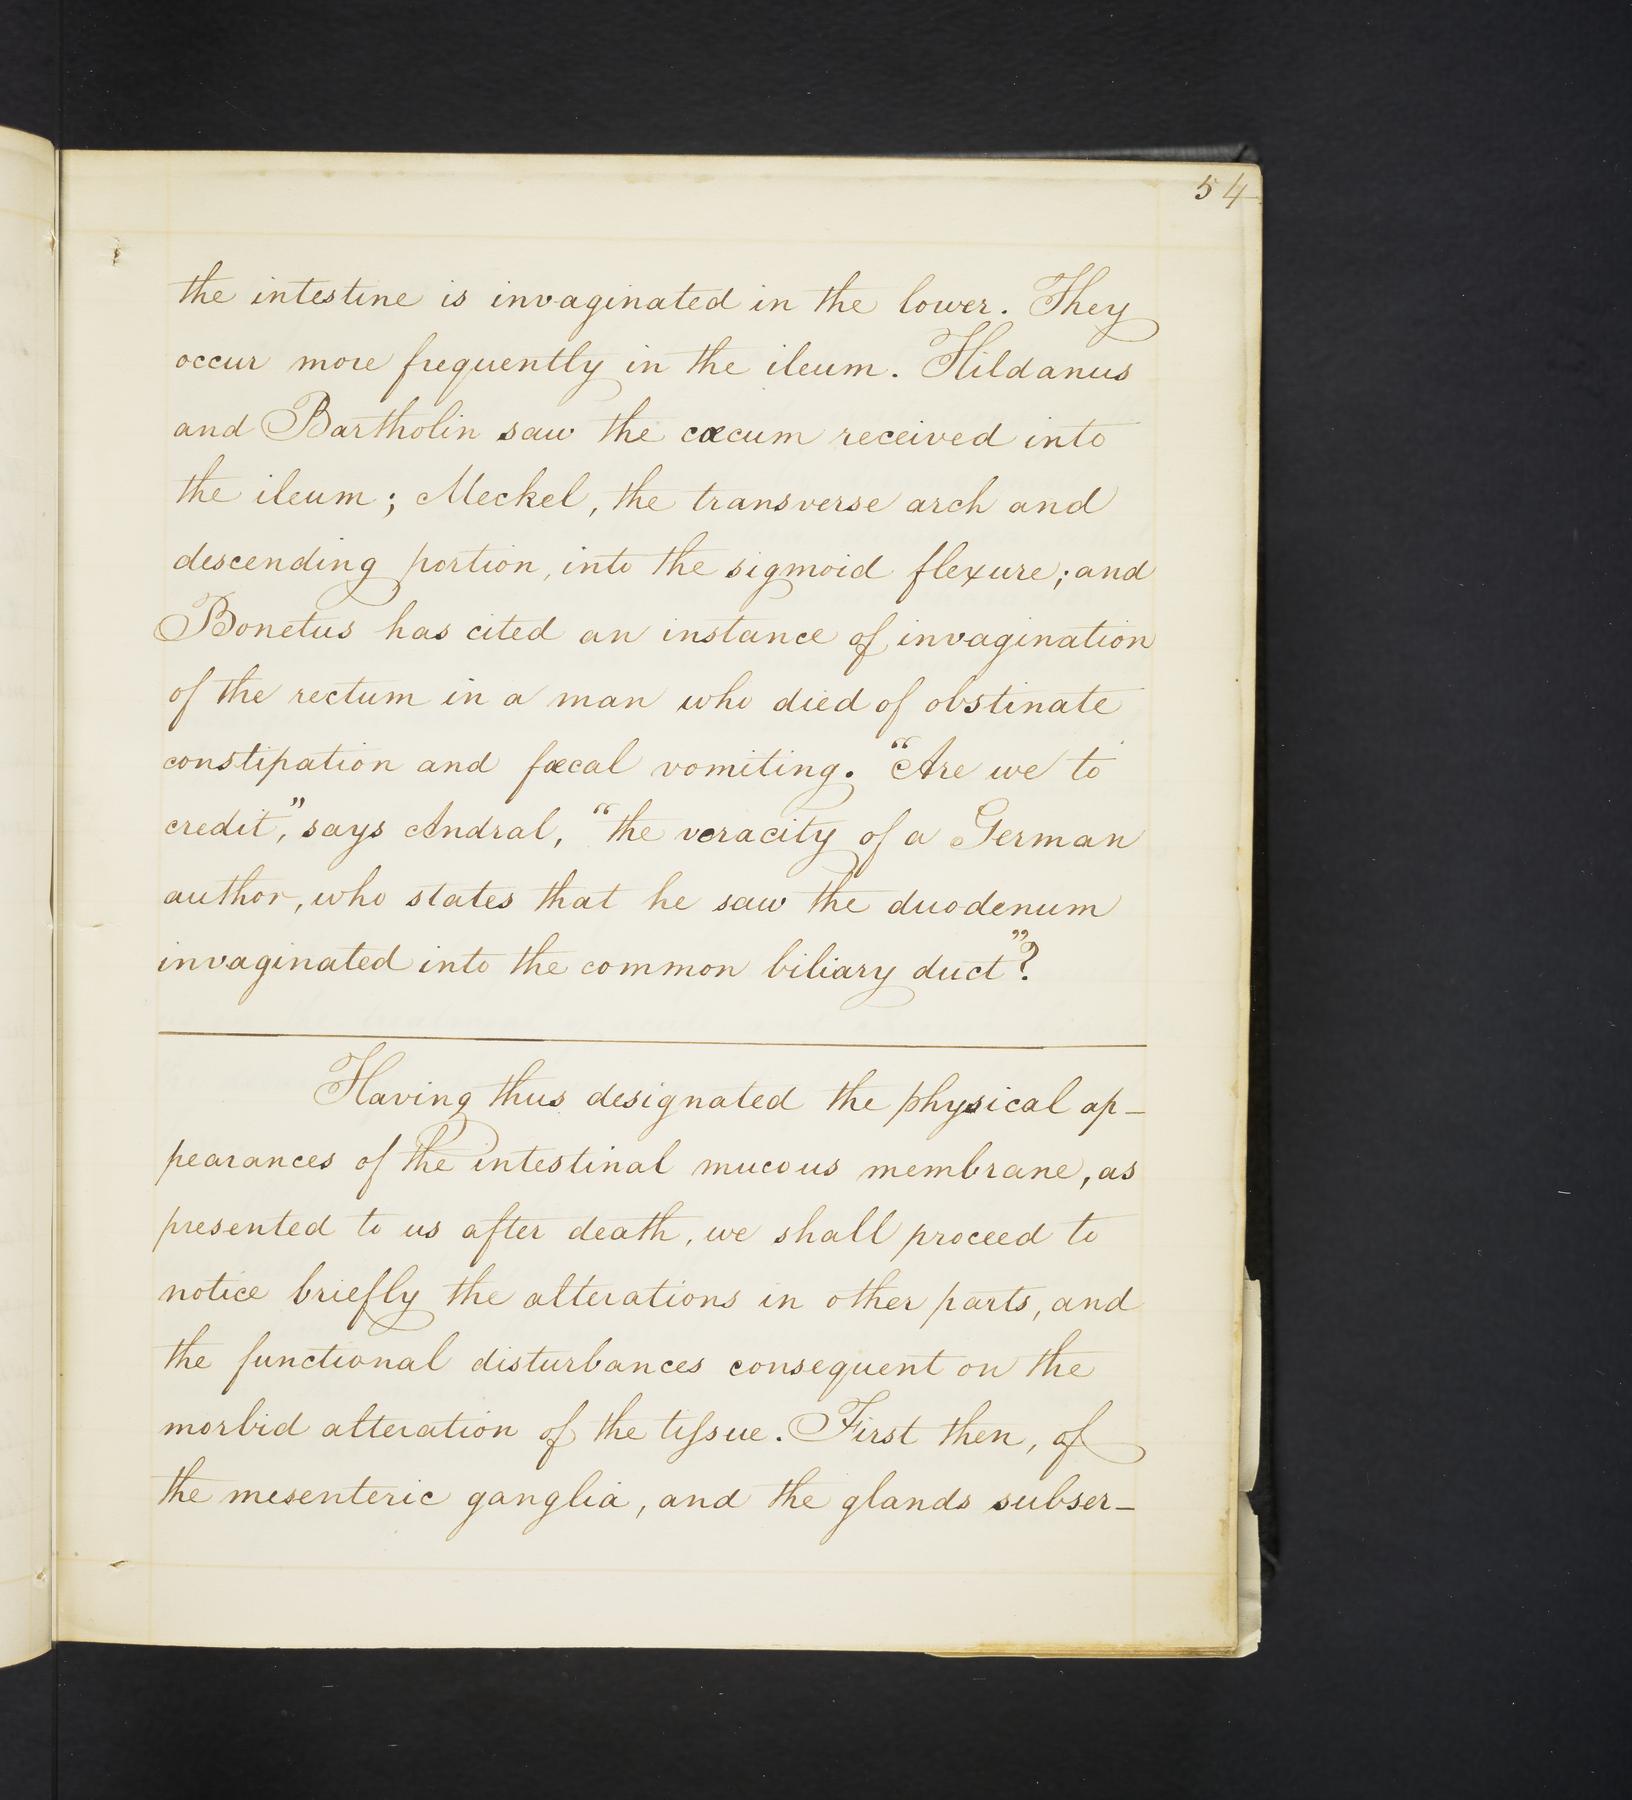 54
the intestine is invaginated in the lower. They
occur more frequently in the ileum. Hildanus
and Bartholin saw the cæcum received into
the ileum; Meckel, the transverse arch and
descending portion, into the sigmoid flexure; and
Bonetus has cited an instance of invagination
of the rectum in a man who died of obstinate
constipation and fæcal vomiting. “Are we to
credit,” says Andral, “the veracity of a German
author, who states that he saw the duodenum
invaginated into the common biliary duct”?
Having thus designated the physical ap-
pearances of the intestinal mucous membrane, as
presented to us after death, we shall proceed to
notice briefly the alterations in other parts, and
the functional disturbances consequent on the
morbid alteration of the tiſsue. First then, of
the mesenteric ganglia, and the glands subser-